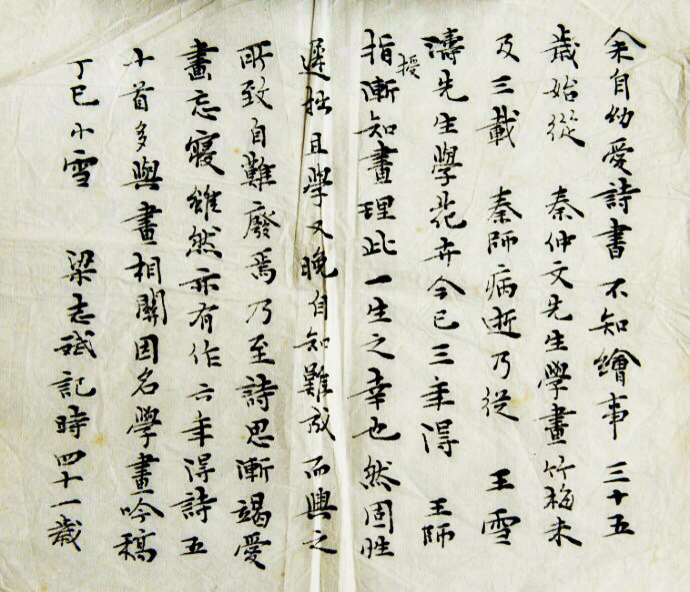 余自幼愛詩書不知繪事三十五
歲始從 秦仲文先生學畫竹梅未
及三載 秦師病逝乃從 王雪
濤先生學花卉今已三年得 王師
指授漸知畫理此一生之幸也然固性
遲拙且學又晚自知難成而興之
所致自難廢焉乃至詩思漸竭愛
畫忘寢雖然亦有作六年得詩五
十首多與畫相關因名學畫吟稿
丁巳小雪 梁志斌記時四十一歲